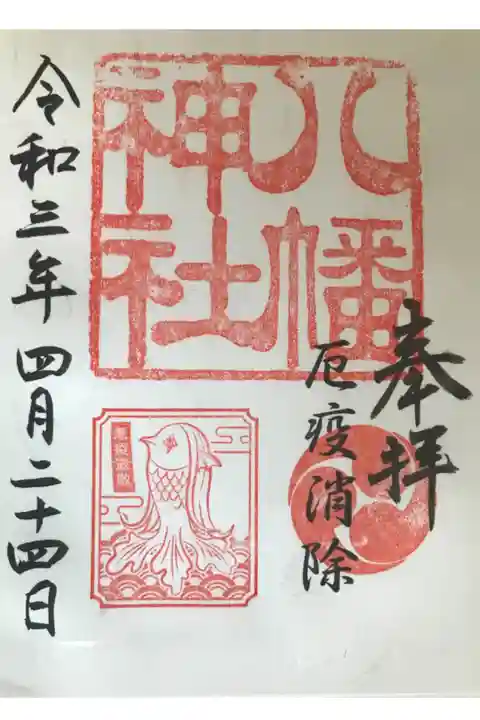 奉拝
厄疫消除
八幡
神社
令和三年四月二十四日